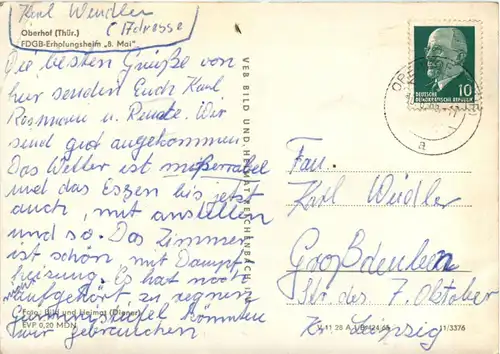 Karl Wendler
(Adresse)
Oberhof (Thür.)
FDGB-Erholungsheim „8. Mai"
Die besten Grüße von
hier senden Euch Karl
Rosmarie u. Renate. Wir
sind gut angekommen
Das Wetter ist mißerrabel
und das Essen bis jetzt
auch, mit anstellen
und so. Das Zimmer
ist schön mit Dampf
heizung. Es hat noch
nicht aufgehört zu regnen
Gummistiefel könnten
wir gebrauchen
Foto: Bild und Heimat
EVP 0,20 MDN
VEB BILD UND HEIMAT REICHENBACH
DEUTSCHE
DEMOKRATISCHE REPUBLIK
10
a
Fam.
Karl Weidler
Großdeuben
Str. des 7. Oktober
Kr. Leipzig
11/3376